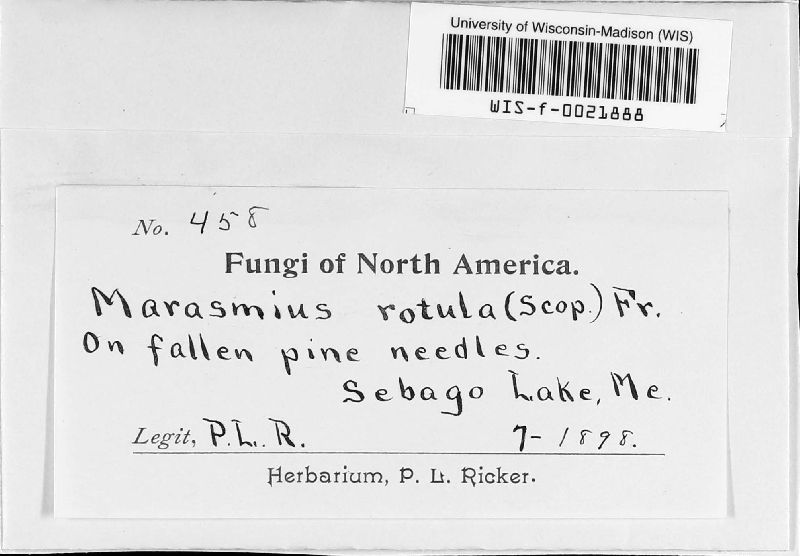 University of Wisconsin-Madison (WIS)
WIS-f-0021888
No. 458
Fungi of North America.
Marasmius rotula (Scop.) Fr.
On fallen pine needles.
Sebago Lake, Me.
Legit, P. L. R. 7-1898.
Herbarium, P. L. Ricker.